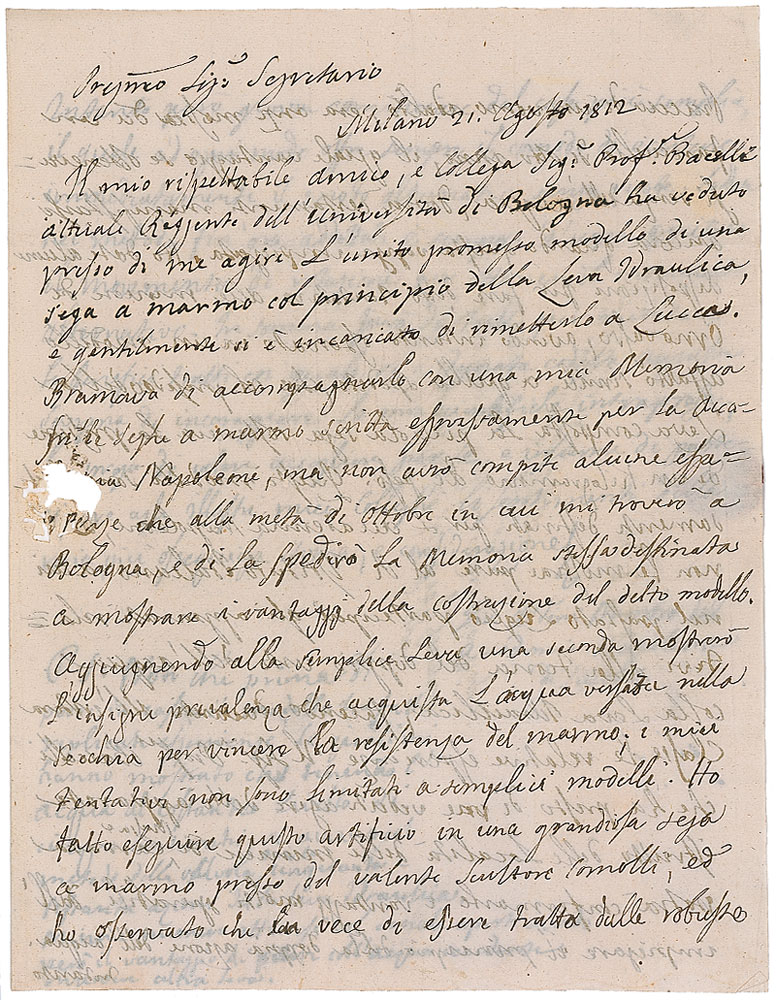 Pregmo Sigr Segretario
Milano 21. Agosto 1812
Il mio rispettabile Amico, e Collega Sigr Profr Racelli
attuale Reggente dell'Università di Bologna ha veduto
presso di me agire L'unito promesso modello di una
sega a marmo col principio della Leva Idraulica,
e gentilmente si è incaricato di rimetterlo a Lucca.
Bramava di accompagnarlo con una mia Memoria
seghe a marmo scritta espressamente per la Aca-
mia Napoleone, ma non avrò compite alcune espe-
rienze che alla metà di Ottobre in cui mi troverò a
Bologna e di là spedirò La Memoria stessa destinata
a mostrare i vantaggi della costruzione del detto modello.
Aggiugnendo alla semplice Leva una seconda mostrerò
L'insigne prevalenza che acquista L'acqua versata nella
secchia per vincere la resistenza del marmo; i miei
tentativi non sono limitati a semplici modelli. Ho
fatto eseguire questo artificio in una grandiosa sega
a marmo presso del valente Scultore Comolli, ed
ho osservato che in vece di essere tratta dalle robuste